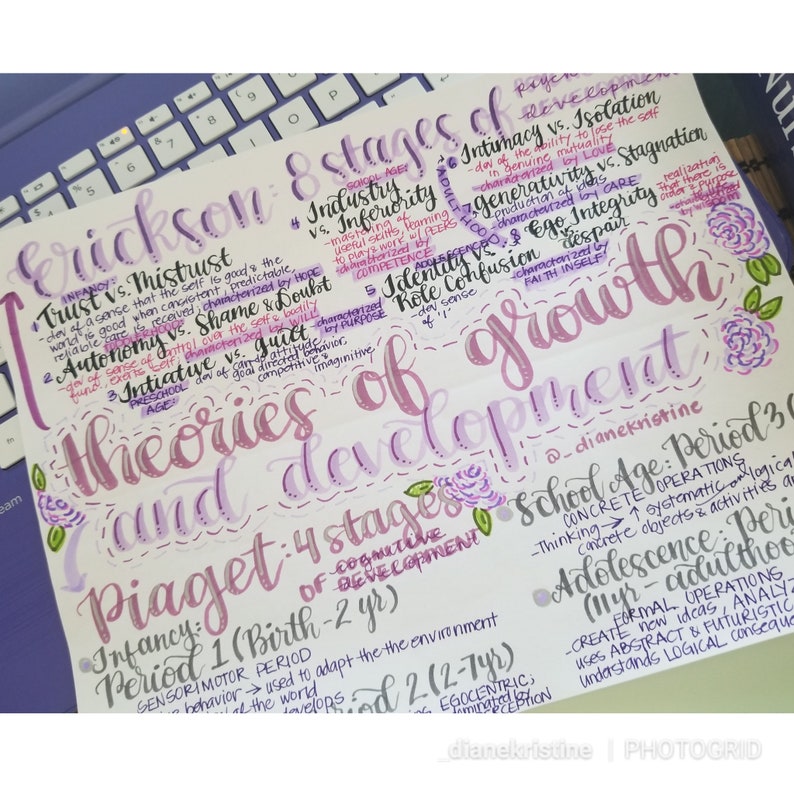 Erickson: 8 stages of
development
INFANCY:
1 Trust vs. Mistrust
-dev of a sense that the self is good & the
world is good when consistent, predictable,
reliable care is received; characterized by HOPE
2. Autonomy vs. Shame & Doubt
-dev of sense of control over the self & bodily
func, exerts self; characterized by WILL
3. Intiative vs. guilt
PRESCHOOL
AGE:
dev of can do attitude,
goal directed behavior,
competitive &
imaginitive
characterized
by PURPOSE
SCHOOL AGE:
4 Industry
vs. Inferiority
-mastering of
useful skills, learning
to play & work w/ PEEKS
-characterized by
COMPETENCE
ADOLESCENCE:
5 Identity vs.
Role Confusion
dev sense
of "I"
ADULTHOOD
6 Intimacy vs. Isolation
-dev of the ability to lose the self
in genuine mutuality
-characterized by LOVE
7. generativity vs. Stagnation
production of ideas
-characterized by CARE
8 Ego Integrity
vs.
despair
characterized by
FAITH IN SELF
realization
that there is
order & purpose
theories of growth
and development
@_dianekristine
Piaget: 4 stages
OF cognitive
DEVELOPMENT
Infancy:
Period 1 (Birth - 2 yr)
SENSORIMOTOR PERIOD
behavior → used to adapt the the environment
of the world
develops
2 (2-7yr)
EGOCENTRIC,
dominated by
PERCEPTION
School Age: Period 3
CONCRETE OPERATIONS
-Thinking → ↑ systematic & logical
concrete objects & activities
Adolescence:
(11yr - adulthood
FORMAL OPERATIONS
-CREATE new ideas,
uses ABSTRACT & FUTURISTIC
understands LOGICAL
_dianekristine | PHOTOGRID